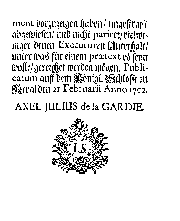 ment vorzuzeigen haben/ ungesäumt
abgewiesen/ und nicht pariret, viel we-
niger denen Executoren Unterhalt/
unter was für einem prætext es seyn
wolle/ gereichet werden mögen. Publi-
catum auf dem Königl. Schlosse zu
Reval den 21 Februarii Anno 1702.
AXEL JULIUS de la GARDIE.
L.S.